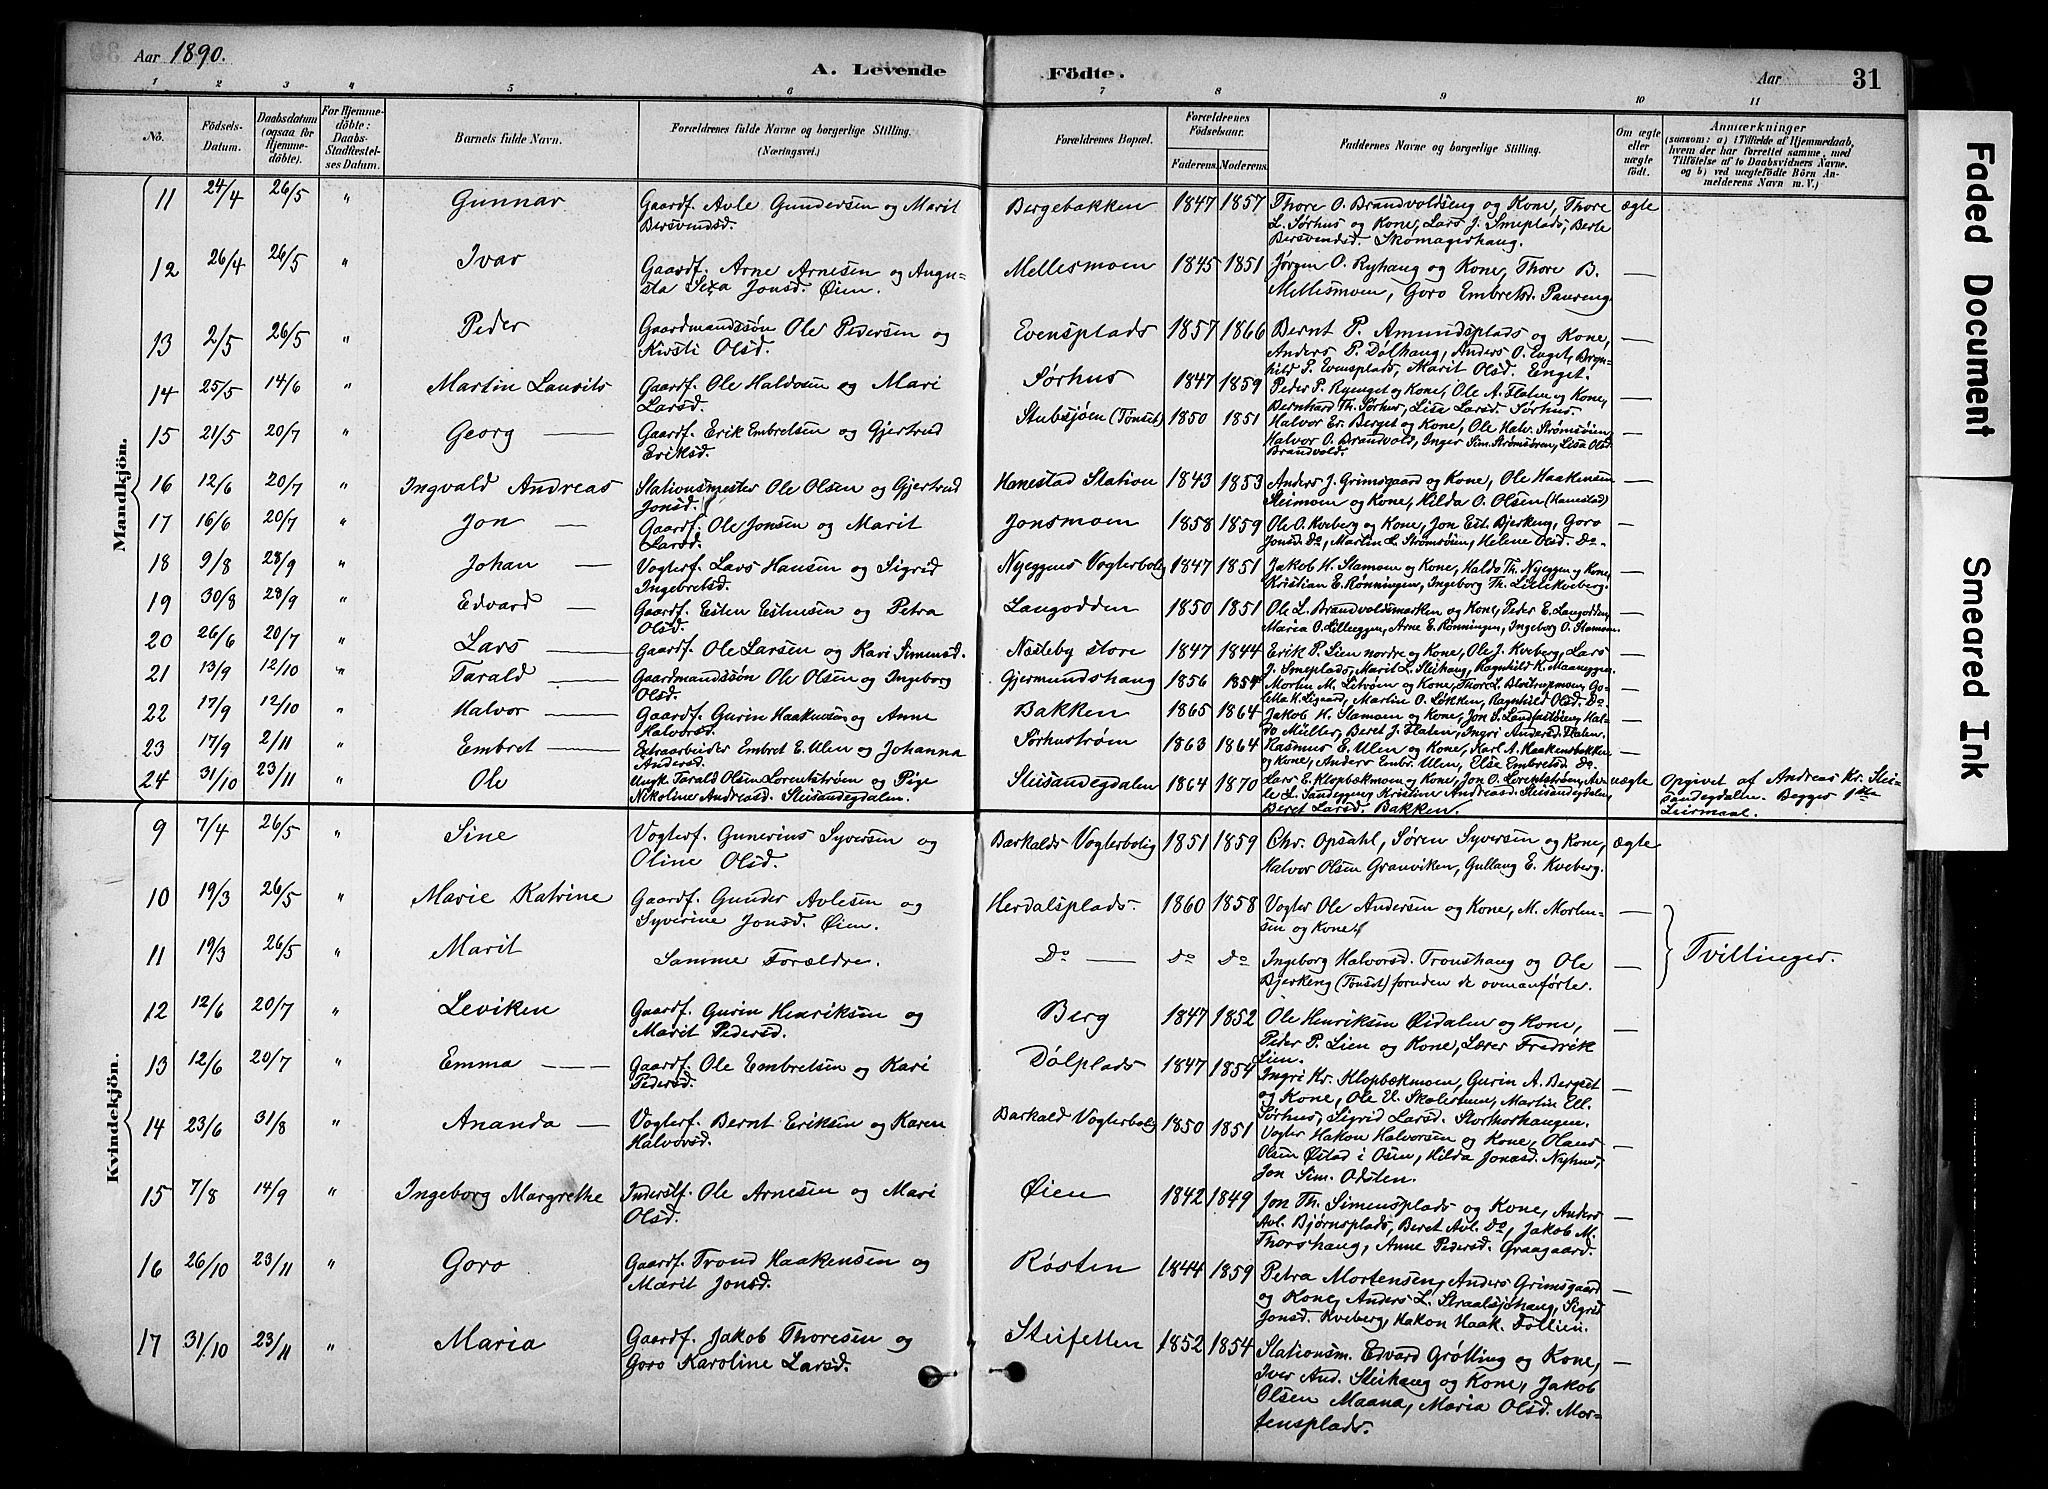 Aar 1890.
A. Levende Födte.
Aar 31
1 2 3 4 5 6 7 8 9 10 11
No. | Födsels-Datum. | Daabsdatum (ogsaa for Hjemmedöbte). | For Hjemmedöbte: Daabs-Stadfæstelses Datum. | Barnets fulde Navn. | Forældrenes fulde Navne og borgerlige Stilling. (Næringsvei.) | Forældrenes Bopæl. | Forældrenes Födselsaar. Faderens. Moderens. | Faddernes Navne og borgerlige Stilling. | Om ægte eller uægte födt. | Anmærkninger (saasom: a) i Tilfælde af Hjemmedaab, hvem der har forrettet samme, med Tilföielse af to Daabsvidners Navne. og b) ved uægtefödte Börn Anmelderens Navn m. V.)
Mandkjön.
11 24/4 26/5 " Gunnar Gaardf. Avle Gundersen og Marit Bersvendsd. Bergebakken 1847 1857 Thore O. Brandvoldseng og Kone, Thore L. Sørhus og Kone, Lars J. Smeplads, Berte Bersvendsd. Skomagerhaug. ægte
12 26/4 26/5 " Ivar Gaardf. Arne Arnesen og Augusta Jonsd. Øien. Mellesmoen 1845 1851 Jørgen O. Ryhaug og Kone, Thore B. Mellesmoen, Goro Embretsd. —
13 2/5 26/5 " Peder Gaardmandssøn Ole Pedersen og Kirsti Olsd. Evensplads 1857 1866 Bernt P. Amundsplads og Kone, Anders P. Dølhaug, Anders O. Enget, Brynhild P. Evensplads, Marit Olsd. Enget. —
14 25/5 14/6 " Martin Laurits Gaardf. Ole Haldosen og Mari Larsd. Sørhus 1847 1859 Peder P. Ryenget og Kone, Ole A. Flaten og Kone, Bernhard Th. Sørhus, Lise Larsd. Sørhus. —
15 21/5 20/7 " Georg — Gaardf. Erik Embretsen og Gjertrud Eriksd. Stubsjøen (Tønset) 1850 1851 Halvor Er. Berget og Kone, Ole Halv. Strømsøien, Halvor O. Brandvold, Inger Sim. Strømsøien, Lisa Olsd. Brandvold. —
16 12/6 20/7 " Ingvald Andreas Stationsmester Ole Olsen og Gjertrud Jonsd. Hanestad Station 1843 1853 Anders J. Grimsgaard og Kone, Ole Haakensen Steimoen og Kone, Hilda O. Olsen (Hanestad) —
17 16/6 20/7 " Jon — Gaardf. Ole Jonsen og Marit Larsd. Jonsmoen 1858 1859 Ole O. Kveberg og Kone, Jon Est. Bjerkeng, Goro Jonsd. Do, Martin L. Strømsøien, Helene Olsd. Do. —
18 9/8 28/9 " Johan — Vogterf. Lars Hansen og Sigrid Ingebretsd. Nyeggens Vogterbolig 1847 1851 Jakob H. Stamoen og Kone, Haldo Th. Nyeggen og Kone, Kristian E. Rønningen, Ingeborg Th. Lillekveberg. —
19 30/8 28/9 " Edvard — Gaardf. Esten Estensen og Petra Olsd. Langodden 1850 1851 Ole L. Brandvoldsmarken og Kone, Peder E. Langodden, Maria O. Lilleeggen, Arne E. Rønningen, Ingeborg O. Stamoen. —
20 26/6 20/7 " Lars — Gaardf. Ole Larsen og Kari Simensd. Næsleby store 1847 1844 Erik P. Lien nordre og Kone, Ole J. Kveberg, Lars J. Smeplads, Marit L. Steihaug, Ragnhild K. Maaneggen. —
21 13/9 12/10 " Tarald — Gaardmandssøn Ole Olsen og Ingeborg Olsd. Gjermundshaug 1856 1854 Morten M. Litrøen og Kone, Thore L. Goletha K. Lisgaard, Martin O. Løkken, Ragnhild Olsd. Do. —
22 17/9 12/10 " Halvor — Gaardf. Gurin Haakensen og Anne Halvorsd. Bakken 1865 1864 Jakob H. Stamoen og Kone, Jon S. Landfastøien, Haldo Müller, Beret J. Flaten, Ingri Andersd. Flaten. —
23 17/9 2/11 " Embret — Extraarbeider Embret E. Ulen og Johanna Andersd. Sørhusstrøm 1863 1864 Rasmus E. Ulen og Kone, Karl A. Haakensbakken og Kone, Anders Embr. Ulen, Else Embretsd. Do. —
24 31/10 23/11 " Ole Ungk. Tarald Olsen Lorentstrøen og Pige Nikoline Andreasd. Steisandegdalen. Steisandegdalen 1864 1870 Lars E. Klopbækmoen og Kone, Jon O. Lorentstrøen, Avle L. Sandeggen, Kristine Andreasd. Steisandegdalen, Beret Larsd. Bakken. uægte Opgivet af Andreas Kr. Steisandegdalen. Begges 1ste Leiermaal.
Kvindekjön.
9 7/4 26/5 " Sine Vogterf. Gunerius Syversen og Oline Olsd. Barkalds Vogterbolig 1851 1859 Chr. Opsahl, Søren Syversen og Kone, Halvor Olsen Granviken, Gullaug E. Kveberg. ægte
10 19/3 26/5 " Marie Katrine Gaardf. Gunder Avlesen og Syverine Jonsd. Øien. Herdalsplads 1860 1858 Vogter Ole Andersen og Kone, M. Mortensen og Kone. —
11 19/3 26/5 " Marit Samme Forældre. Do — Do Do Ingeborg Halvorsd. Tronshaug og Ole Bjerkeng (Tønset) foruden de ovenanførte. — Tvillinger.
12 12/6 20/7 " Leviken Gaardf. Gurin Henriksen og Marit Pedersd. Berg 1847 1852 Ole Henriksen Øidalen og Kone, Peder P. Lien og Kone, Lærer Fredrik Lien. —
13 12/6 20/7 " Emma — Gaardf. Ole Embretsen og Kari Pedersd. Dølplads 1847 1854 Ingri Kr. Klopbækmoen, Gurin A. Berget og Kone, Ole E. Martin Ell. Sørhus, Sigrid Larsd. Storhorhaugen. —
14 23/6 31/8 " Ananda — Vogterf. Bernt Eriksen og Karen Halvorsd. Barkald Vogterbolig 1850 1851 Vogter Hakon Halvorsen og Kone, Olaus Olsen Østad i Osen, Hilda Jonasd. Nyhus, Jon Sim. Odsten. —
15 7/8 14/9 " Ingeborg Margrethe Inderstf. Ole Arnesen og Mari Olsd. Øien 1842 1849 Jon Th. Simensplads og Kone, Anders Avl. Bjørnsplads, Beret Avl. Do, Jakob M. Thorshaug, Anne Pedersd. Graagaard. —
16 26/10 23/11 " Goro Gaardf. Trond Haakensen og Marit Jonsd. Røsten 1844 1859 Petra Mortensen, Anders Grimsgaard og Kone, Anders L. Straalsjøhaug, Sigrid Jonsd. Kveberg, Hakon Haak. Follien. —
17 31/10 23/11 " Maria Gaardf. Jakob Thoresen og Goro Karoline Larsd. Steifetten 1852 1854 Stationsm. Edvard Grøtting og Kone, Iver And. Steihaug og Kone, Jakob Olsen Maana, Maria Olsd. Mortensplads. —
Faded Document
Smeared Ink